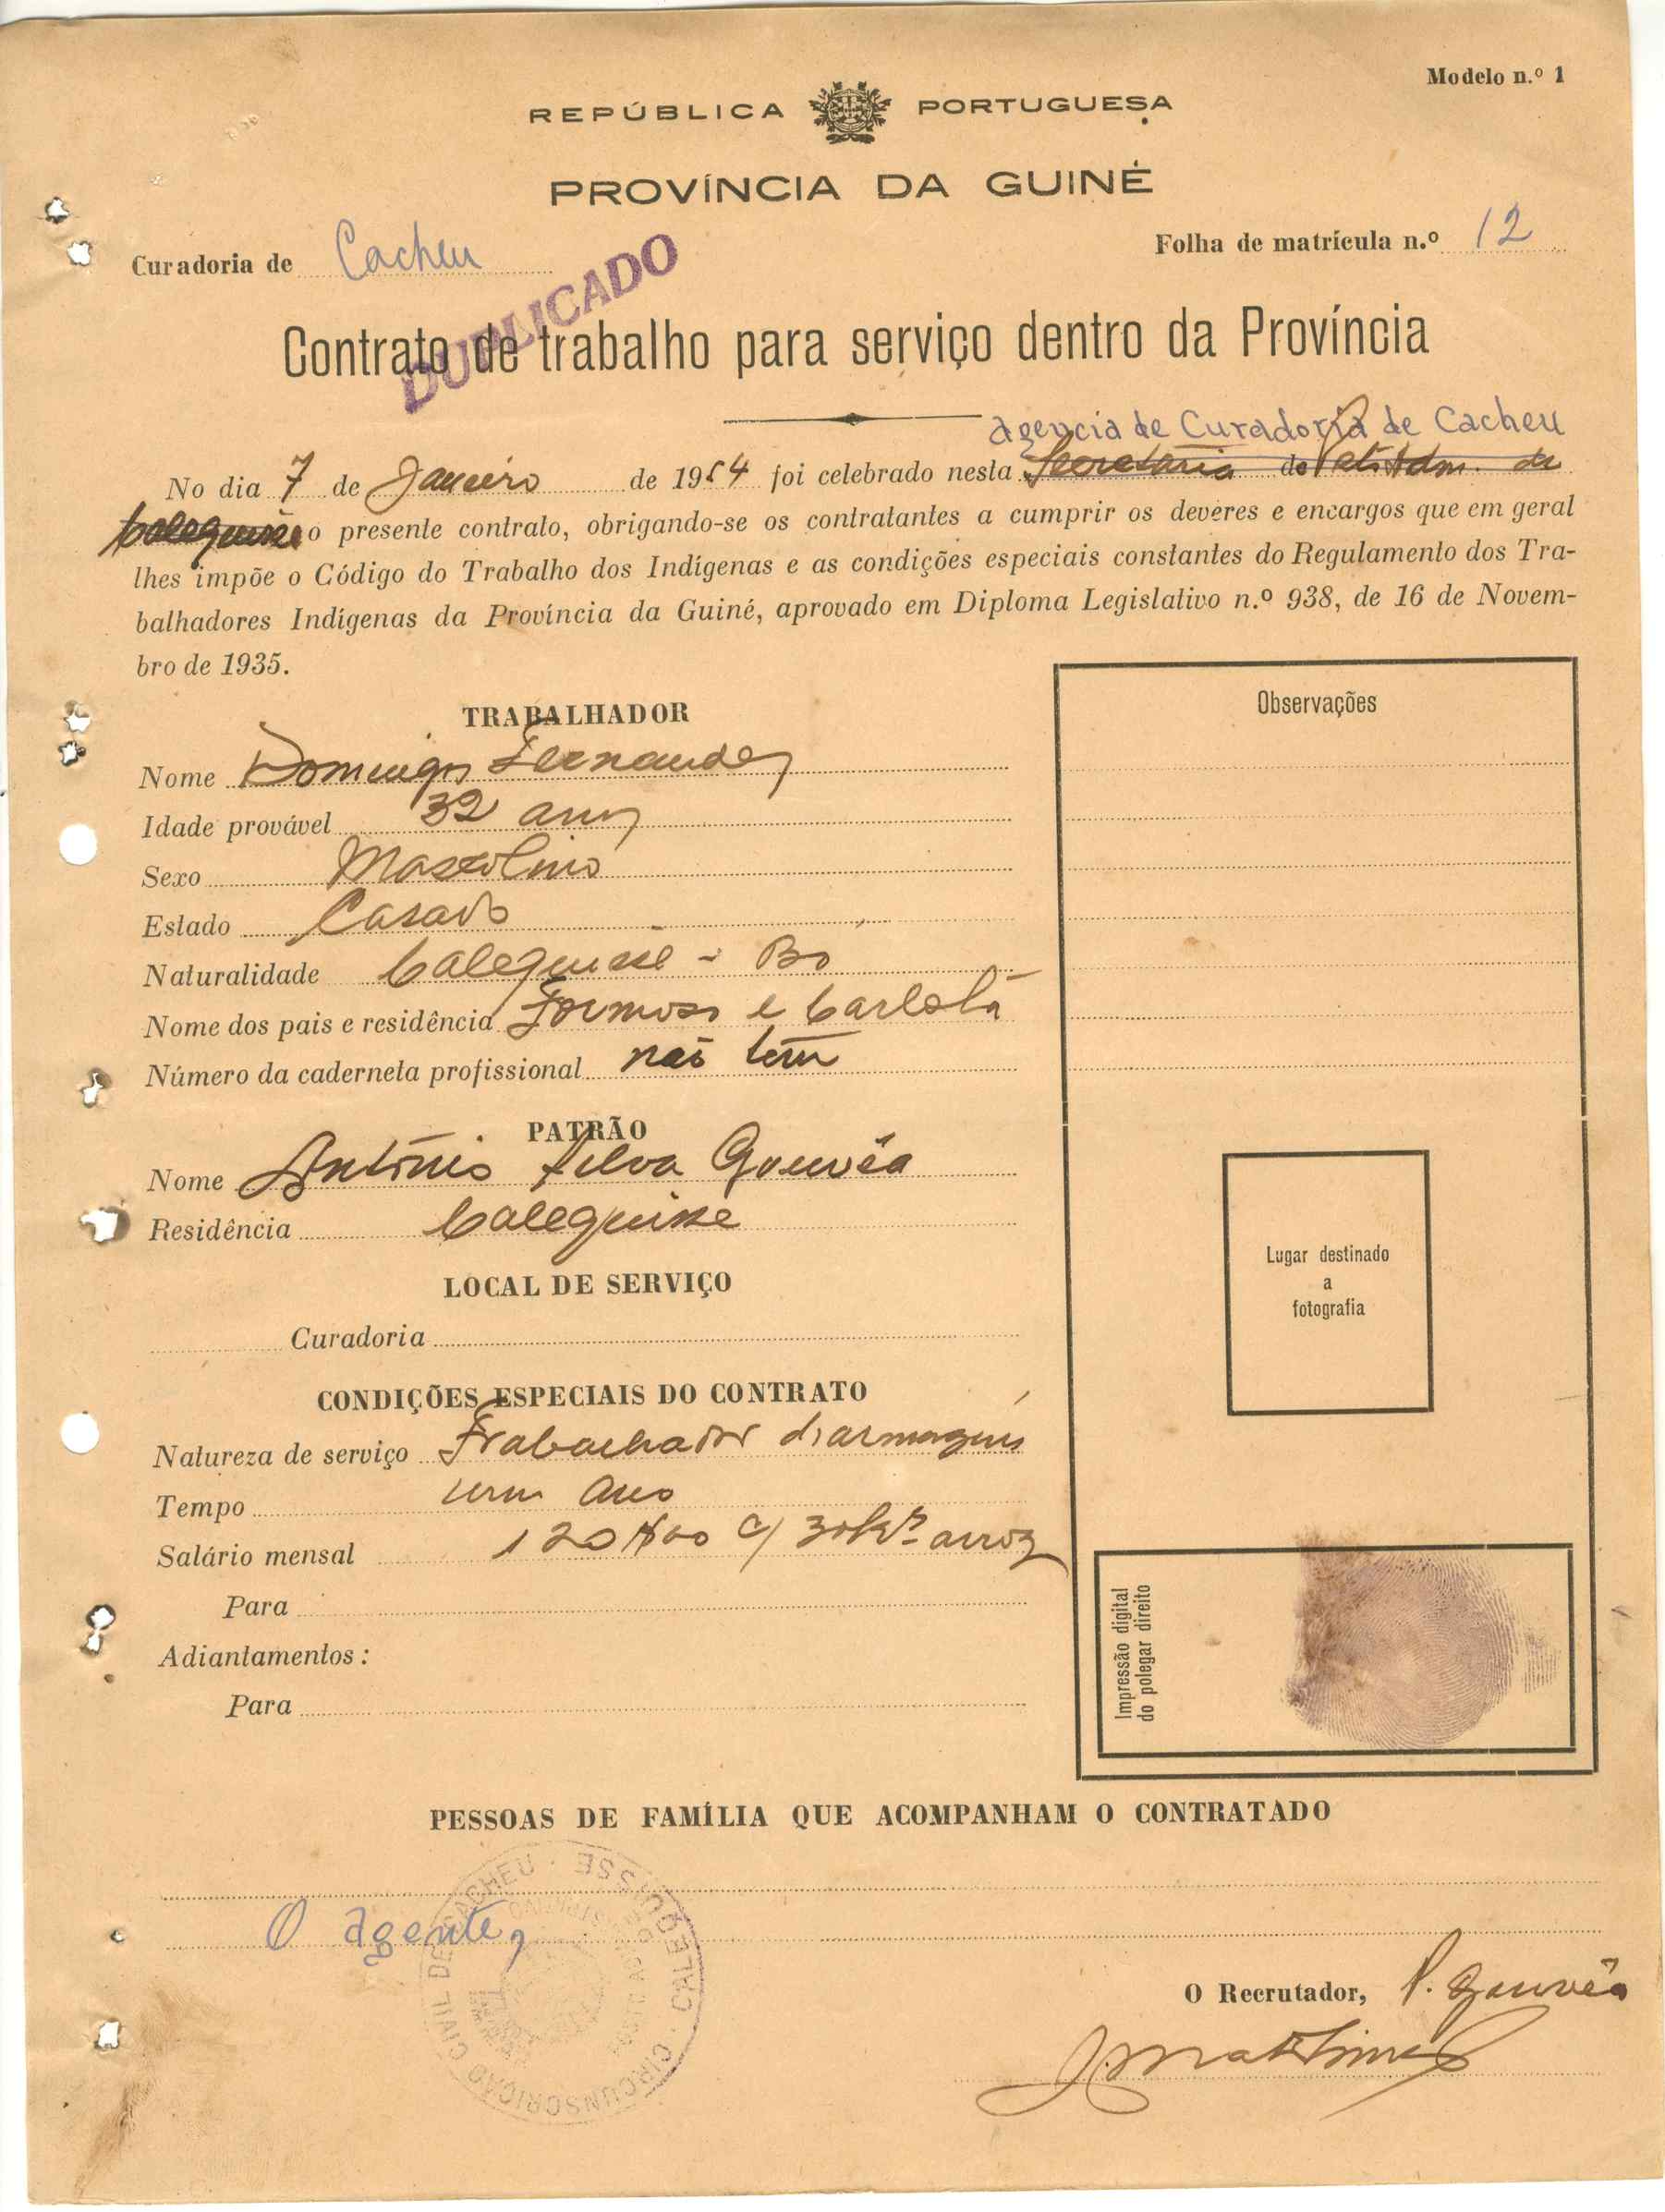 Modelo n.º 1
REPÚBLICA PORTUGUESA
PROVÍNCIA DA GUINÉ
Curadoria de Cacheu
Folha de matrícula n.º 12
DUPLICADO
Contrato de trabalho para serviço dentro da Província
agencia de Curadoria de Cacheu
No dia 7 de Janeiro de 1954 foi celebrado nesta Secretaria do Pôsto Adm. de
Calequisse o presente contrato, obrigando-se os contratantes a cumprir os deveres e encargos que em geral
lhes impõe o Código do Trabalho dos Indígenas e as condições especiais constantes do Regulamento dos Tra-
balhadores Indígenas da Província da Guiné, aprovado em Diploma Legislativo n.º 938, de 16 de Novem-
bro de 1935.
TRABALHADOR
Nome Domingos Fernandes
Idade provável 32 anos
Sexo Masculino
Estado Casado
Naturalidade Calequisse - Bó
Nome dos pais e residência Formoso e Carlota
Número da caderneta profissional não tem
PATRÃO
Nome António Silva Gouvêa
Residência Calequisse
LOCAL DE SERVIÇO
Curadoria
CONDIÇÕES ESPECIAIS DO CONTRATO
Natureza de serviço Trabalhador d'armazens
Tempo um ano
Salário mensal 120$00 c/ 30 Ks. arroz
Para
Adiantamentos:
Para
Observações
Lugar destinado
a
fotografia
Impressão digital
do polegar direito
PESSOAS DE FAMÍLIA QUE ACOMPANHAM O CONTRATADO
O agente,
CIRCUNSCRIÇÃO CIVIL DE CACHEU · CALEQUISSE
POSTO ADMINISTRATIVO
O Recrutador, P. Gouvêa